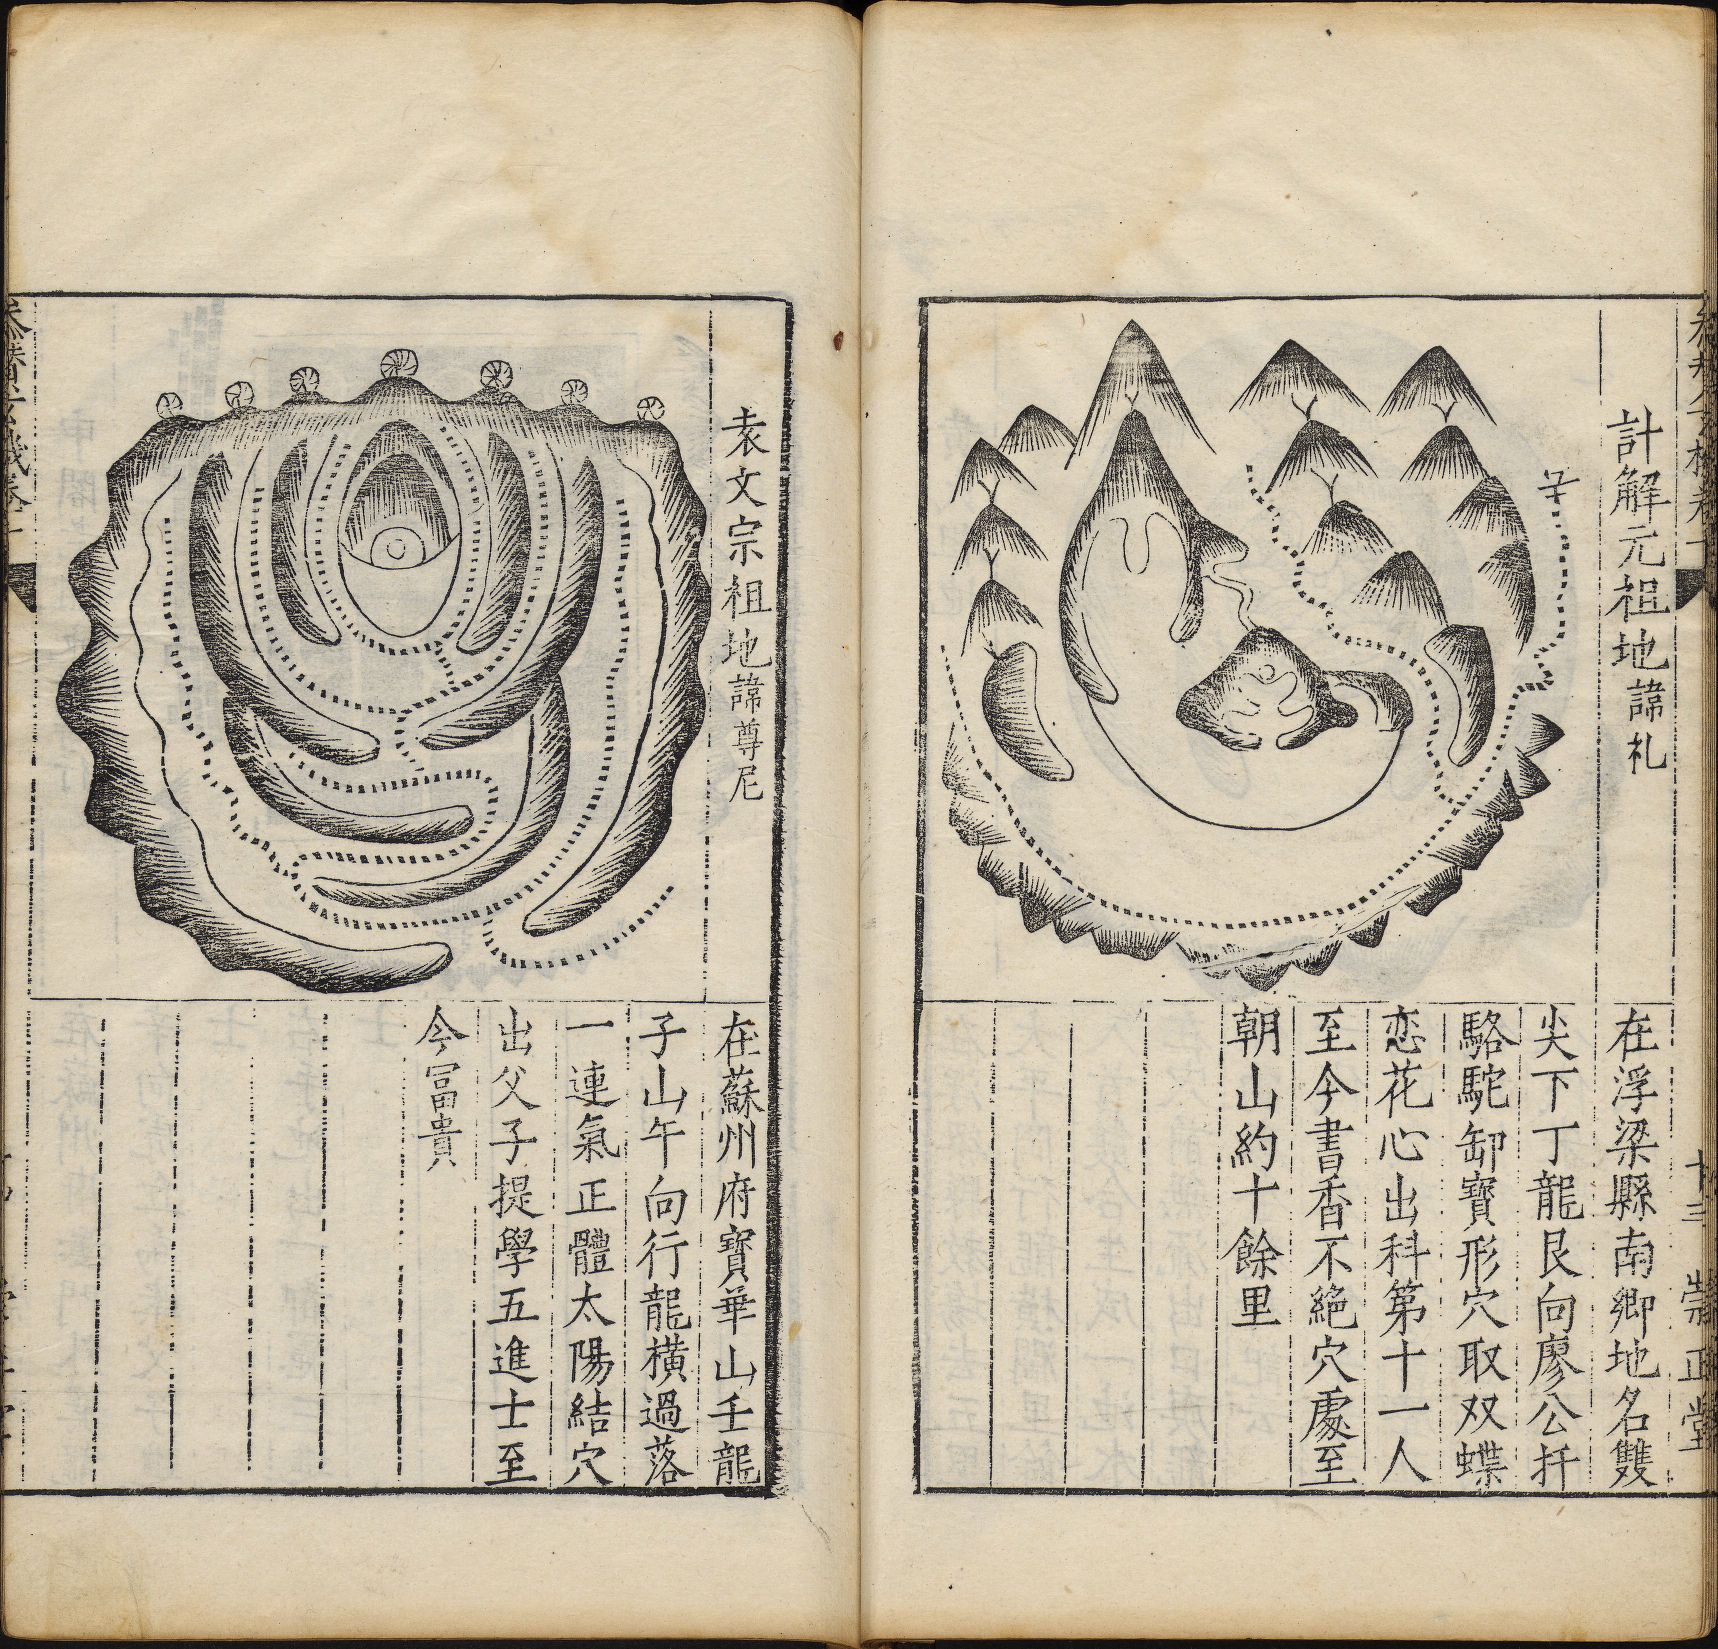 計解元祖地諱札
在浮梁縣南鄉地名雙
尖下丁龍艮向廖公扦
駱駝卸寶形穴取双蝶
恋花心出科第十一人
至今書香不絶穴處至
朝山約十餘里
十三
崇正堂
袁文宗祖地諱尊尼
在蘇州府寶華山壬龍
子山午向行龍橫過落
一連氣正體太陽結穴
出父子提學五進士至
今冨貴